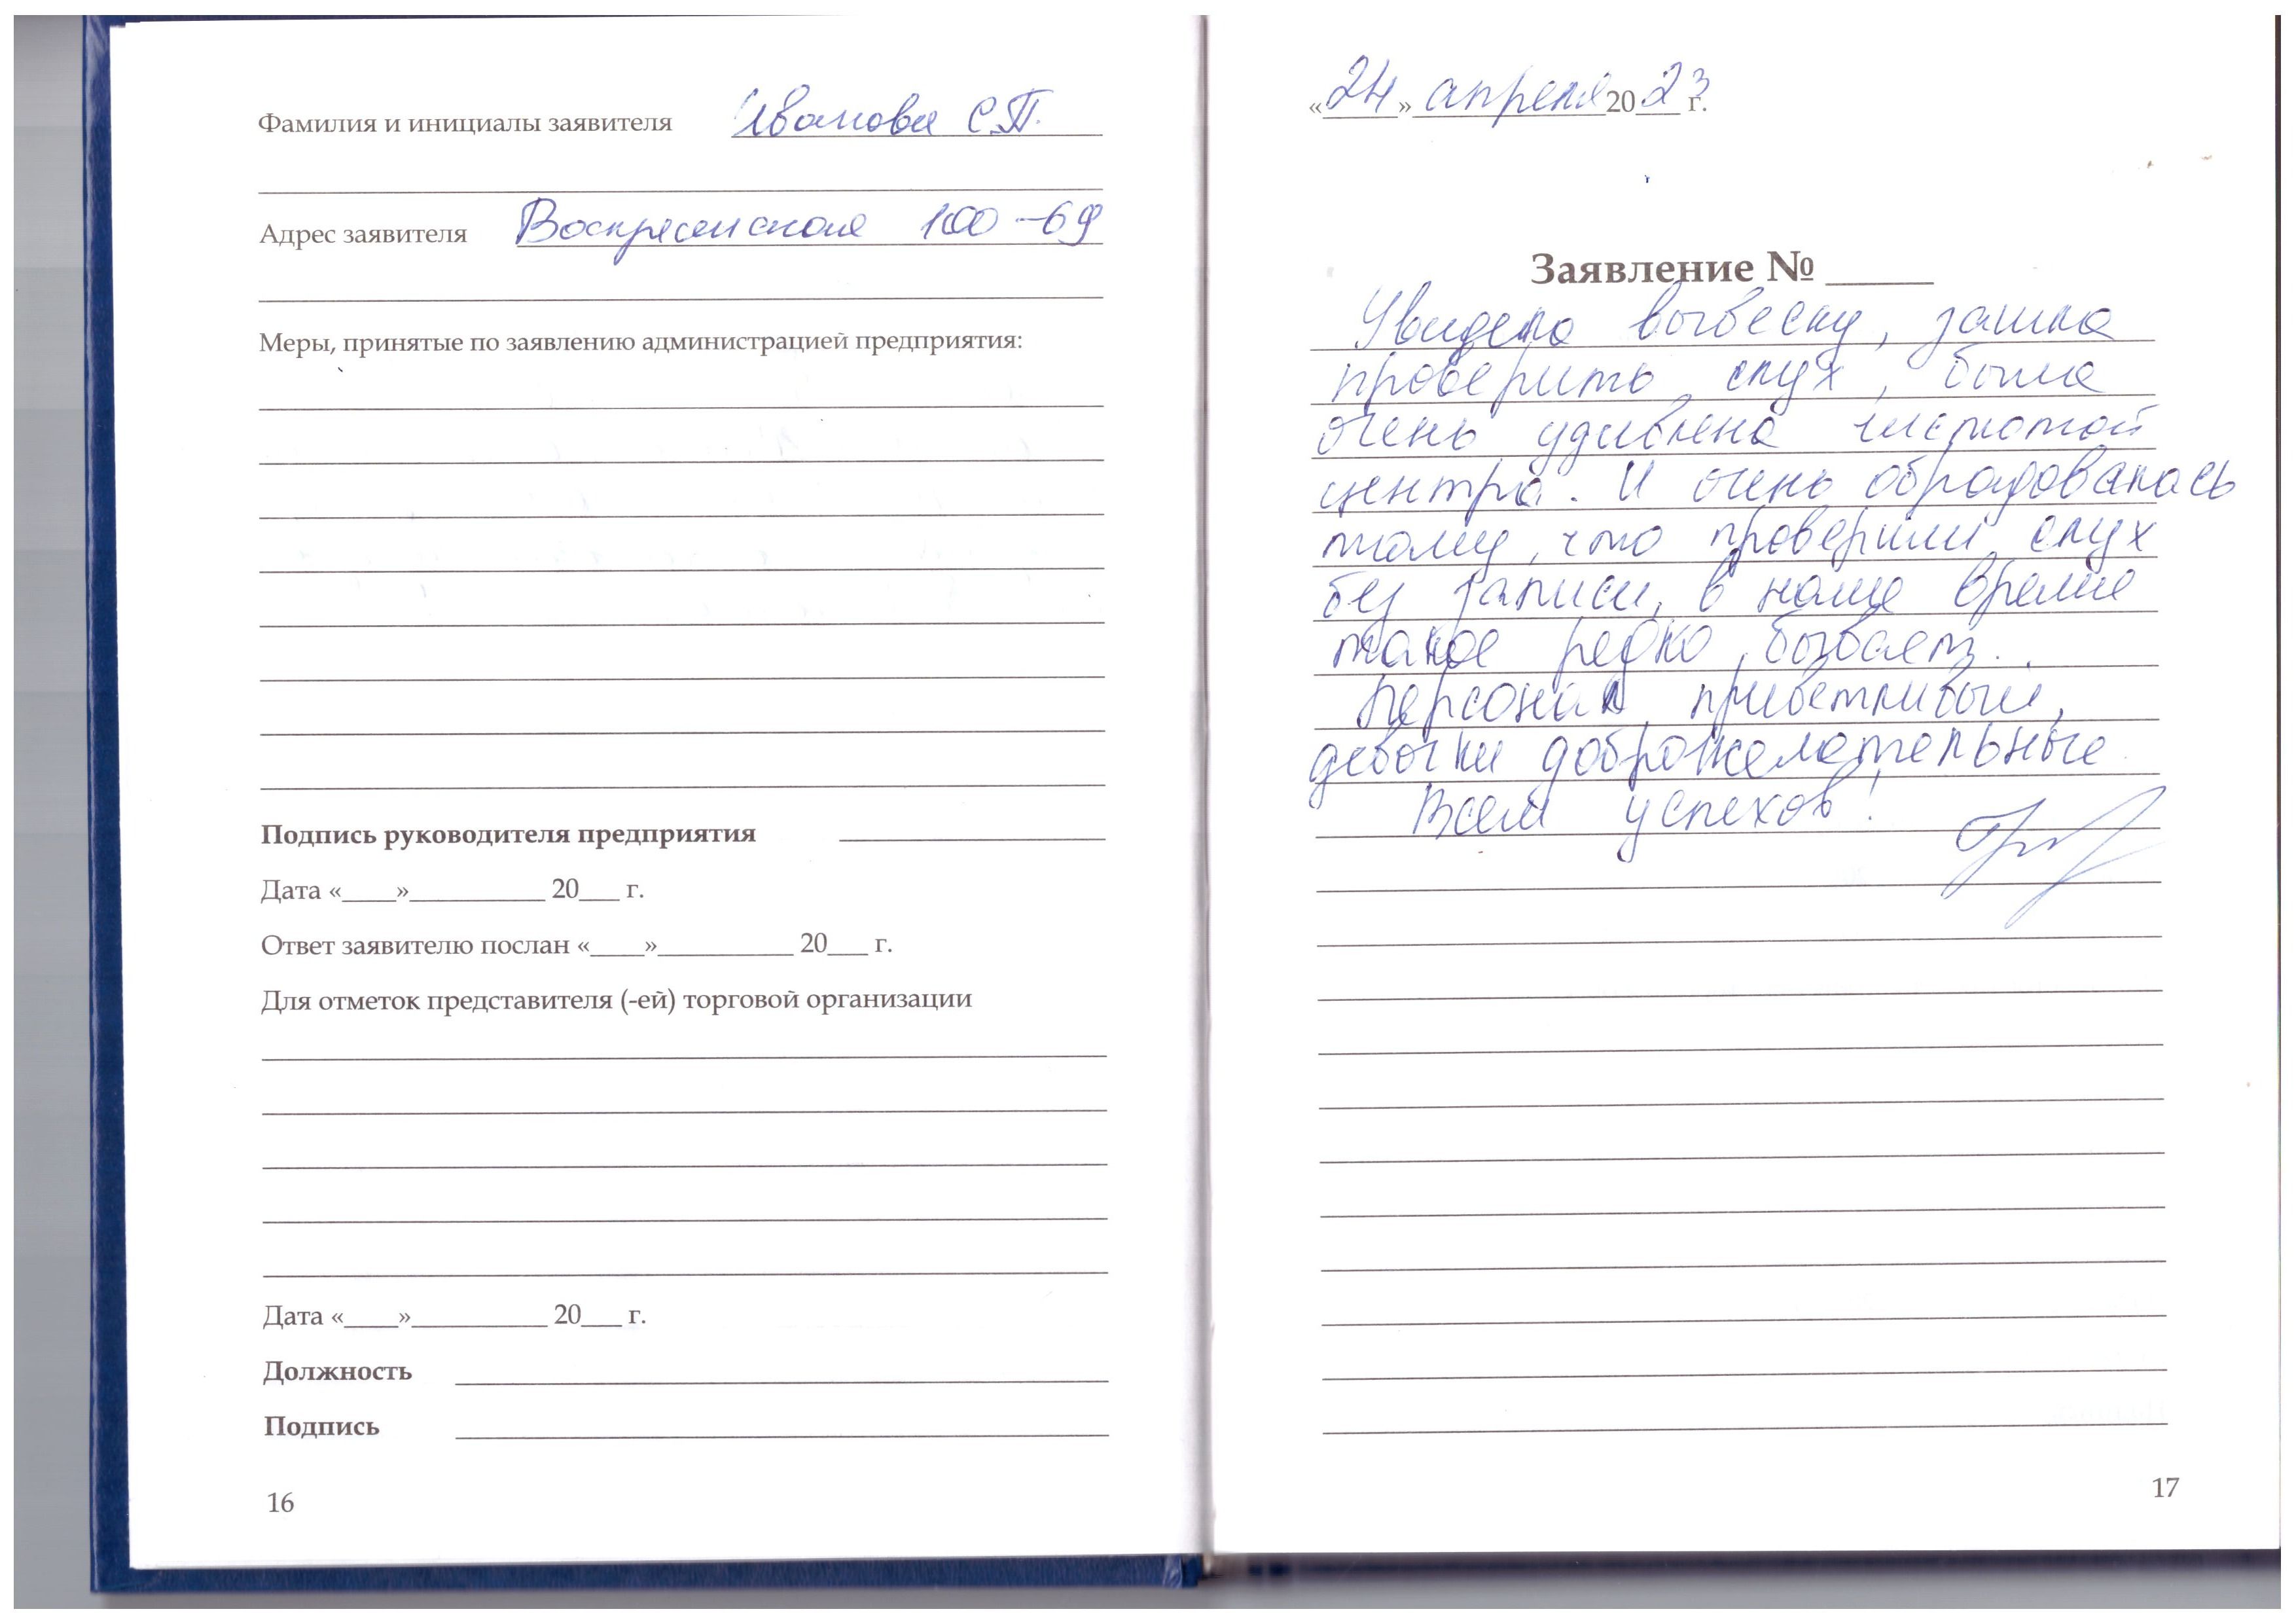 Фамилия и инициалы заявителя Иванова С.П.
Адрес заявителя Воскресенская 100-69
Меры, принятые по заявлению администрацией предприятия:
Подпись руководителя предприятия
Дата «____»__________ 20___ г.
Ответ заявителю послан «____»__________ 20___ г.
Для отметок представителя (-ей) торговой организации
Дата «____»__________ 20___ г.
Должность
Подпись
16
«24» апреля 2023 г.
Заявление № _____
Увидела вывеску, зашла
проверить слух, была
очень удивлена чистотой
центра. И очень обрадовалась
тому, что проверили слух
без записи, в наше время
такое редко бывает.
Персонал приветливый,
девочки доброжелательные
Всем успехов!
17